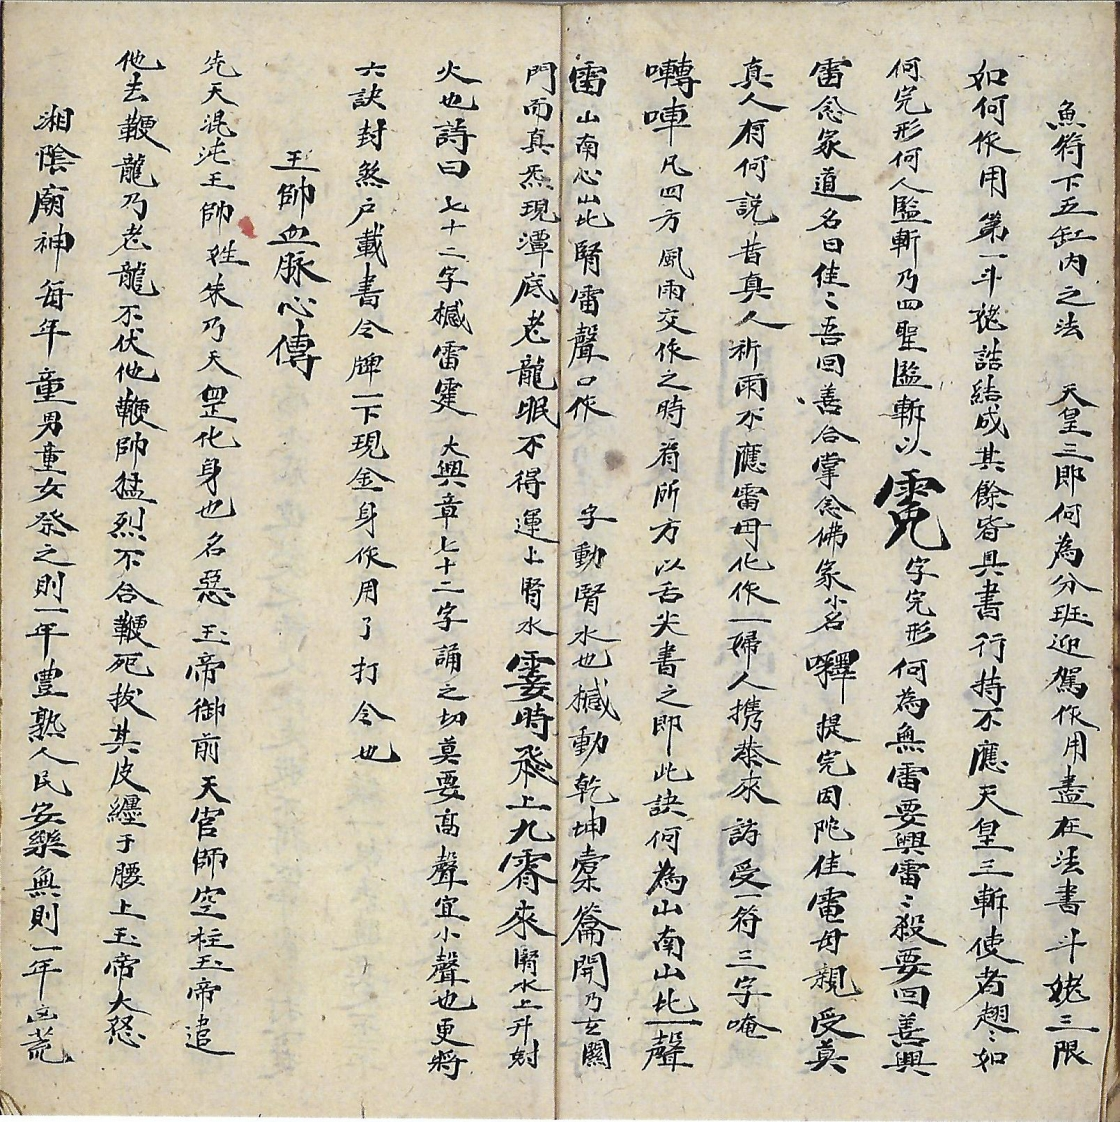 魚符下五缸内之法　天皇三即何為分班迎駕作用盡在法書斗姥三限
如何作用第一斗姥誥結成其餘皆具書行持不應天皇三斬使者趙〻如
何完形何人監斬乃四聖監斬以䨓字完形何為無雷要興雷〻殺要回善興
雷念家道名曰佳〻吾回善合掌念佛家小名嚩提完因陀佳電母親受真
真人有何説昔真人祈雨不應雷毋化作一婦人携恭來訪受一符三字唵
囀𠹌凡四方風雨交作之時看所方以舌尖書之即此訣何為山南山北一聲
雷山南心山北腎雷聲口作　字動腎水也撼動乾坤橐籥開乃玄關
門而真炁現潭底老龍眠不得運上腎水霎時飛上九霄來腎水上升刻
火也詩曰七十二字撼雷霆大興章七十二字誦之切莫要高聲宜小聲也更將
六訣封煞户載書令牌一下現金身作用了打令也
王帥血脉心傳
先天混沌王帥姓朱乃天罡化身也名惡玉帝御前天官師空柱玉帝追
他去鞭龍乃老龍不伏他鞭帥猛烈不合鞭死拔其皮纏于腰上玉帝大怒
湘陰廟神每年童男童女祭之則一年豊熟人民安樂無則一年凶荒